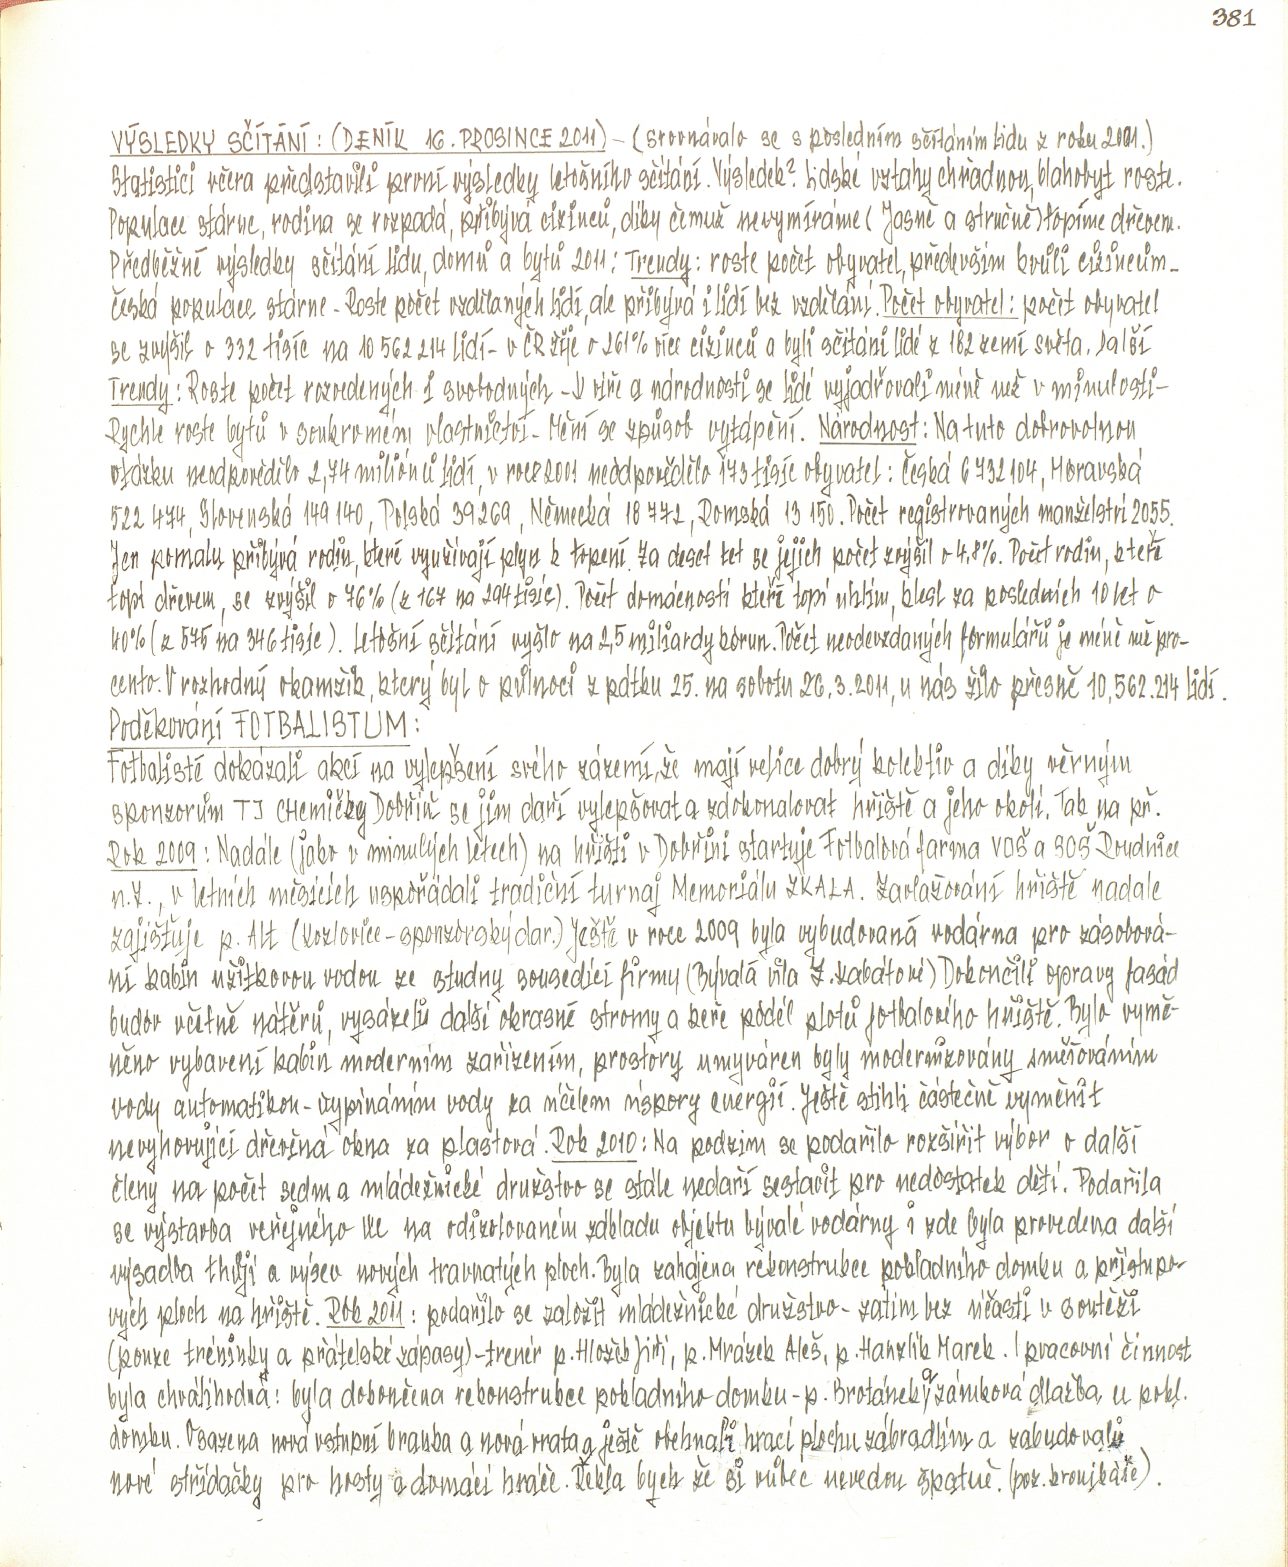 381
VÝSLEDKY SČÍTÁNÍ: (DENÍK 16. PROSINCE 2011) - (srovnávalo se s posledním sčítáním lidu z roku 2001.)
Statistici včera představili první výsledky letošního sčítání. Výsledek? Lidské vztahy chřadnou, blahobyt roste.
Populace stárne, rodina se rozpadá, přibývá cizinců, díky čemuž nevymíráme (Jasně a stručně) topíme dřevem.
Předběžné výsledky sčítání lidu, domů a bytů 2011: Trendy: roste počet obyvatel, především kvůli cizincům -
česká populace stárne - Roste počet vzdělaných lidí, ale přibývá i lidí bez vzdělání. Počet obyvatel: počet obyvatel
se zvýšil o 332 tisíc na 10 562 214 lidí - v ČR žije o 261% více cizinců a byli sčítáni lidé z 182 zemí světa. Další
Trendy: Roste počet rozvedených i svobodných - U víře a národnosti se lidé vyjadřovali méně než v minulosti -
Rychle roste bytů v soukromém vlastnictví - Mění se způsob vytápění. Národnost: Na tuto dobrovolnou
otázku neodpovědělo 2,74 miliónů lidí, v roce 2001 neodpovědělo 173 tisíc obyvatel: Česká 6 732 104, Moravská
522 474, Slovenská 149 140, Polská 39 269, Německá 18 772, Romská 13 150. Počet registrovaných manželství 2055.
Jen pomalu přibývá rodin, které využívají plyn k topení. Za deset let se jejich počet zvýšil o 4,8%. Počet rodin, kteří
topí dřevem, se zvýšil o 76% (z 167 na 294 tisíc). Počet domácností kteří topí uhlím, klesl za posledních 10 let o
40% (z 575 na 346 tisíc). Letošní sčítání vyšlo na 2,5 miliardy korun. Počet neodevzdaných formulářů je méně než pro-
cento. V rozhodný okamžik, který byl o půlnoci z pátku 25. na sobotu 26.3.2011, u nás žilo přesně 10,562.214 lidí.
Poděkování FOTBALISTUM:
Fotbalisté dokázali akcí na vylepšení svého zázemí, že mají velice dobrý kolektiv a díky věrným
sponzorům TJ CHemičky Dobříň se jim daří vylepšovat a zdokonalovat hřiště a jeho okolí. Tak na př.
Rok 2009: Nadále (jako v minulých letech) na hřišti v Dobříni startuje Fotbalová farma VOŠ a SOŠ Roudnice
n.L., v letních měsících uspořádali tradiční turnaj Memoriálu ŠKALA. Zavlažování hřiště nadále
zajišťuje p. Alt (Kozlovice - sponzorský dar.) Ještě v roce 2009 byla vybudovaná vodárna pro zásobová-
ní kabin užitkovou vodou ze studny sousedící firmy (Bývalá vila Z. Kabátové) Dokončili opravy fasád
budov včetně nátěrů, vysázeli další okrasné stromy a keře podél plotů fotbalového hřiště. Bylo vymě-
něno vybavení kabin moderním zařízením, prostory umyváren byly modernizovány směšováním
vody automatikou - vypínáním vody za účelem úspory energií. Ještě stihli částečně vyměnit
nevyhovující dřevěná okna za plastová. Rok 2010: Na podzim se podařilo rozšířit výbor o další
členy na počet sedm a mládežnické družstvo se stále nedaří sestavit pro nedostatek dětí. Podařila
se výstavba veřejného WC na odizolovaném základu objektu bývalé vodárny i zde byla provedena další
výsadba thůjí a výsev nových travnatých ploch. Byla zahájena rekonstrukce pokladního domku a přístupo-
vých ploch na hřiště. Rok 2011: podařilo se založit mládežnické družstvo - zatím bez účasti v soutěži
(pouze tréninky a přátelské zápasy) - trenér p. Hložek Jiří, p. Mrázek Aleš, p. Hanzlík Marek. I pracovní činnost
byla chvályhodná: byla dokončena rekonstrukce pokladního domku - p. Brotánek, a zámková dlažba u pokl.
domku. Osazena nová vstupní branka a nová vrata a ještě obehnali hrací plochu zábradlím a zabudovali
nové střídačky pro hosty a domácí hráče. Řekla bych že si vůbec nevedou špatně. (poz. kronikáře).